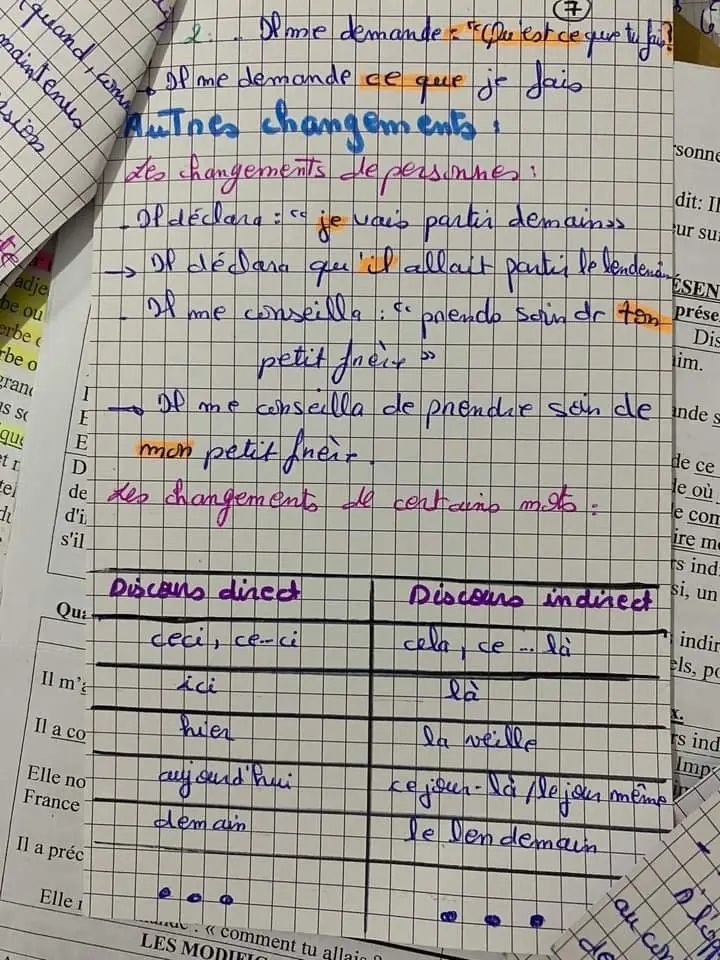 7
2. . Il me demande : "Qu'est ce que tu fais?
→ Il me demande ce que je fais
Autres changements :
Les changements de personnes :
. Il déclara : "je vais partir demain»
→ Il déclara qu'il allait partir le lendemain
. Il me conseilla : " prends soin de ton
petit frère »
→ Il me conseilla de prendre soin de
mon petit frère.
Les changements de certains mots :
Discours direct | Discours indirect
ceci, ce-ci | cela, ce ... là
ici | là
hier | la veille
aujourd'hui | ce jour-là / le jour même
demain | le lendemain
... | ...
quand, com
maintenus
adje
be ou
erbe
rbe o
gran
us so
que
et r
I
E
E
D
de
d'i
s'il
Qua
Il m'
Il a co
Elle no
France
Il a préc
Elle
: « comment tu allais ?
LES MODIFI
sonne
dit: Il
ur su
ÉSEN
prése
Dis
im.
nde s
de ce
le où
e com
ire m
rs ind
si, un
indir
els, po
x.
rs ind
Imp
au con
de